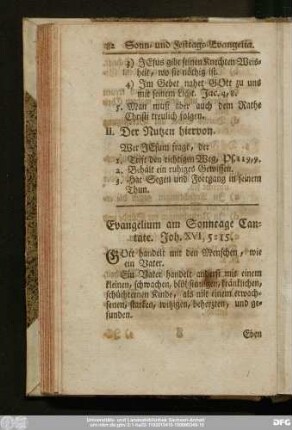 82 Sonn- und Festtags-Evangelia.
3) JEsus gibt seinen Knechten Weis-
heit, wo sie nöthig ist.
4) Im Gebet nahet GOtt zu uns
mit seinem Licht. Jac. 4, 8.
5. Man muß aber auch dem Rathe
Christi treulich folgen.
II. Der Nutzen hiervon.
Wer JEsum fragt, der
1. Trift den richtigen Weg, Ps. 119, 9.
2. Behält ein ruhiges Gewissen.
3. Hat Segen und Fortgang in seinem
Thun.
Evangelium am Sonntage Can-
tate. Joh. XVI, 5-15.
GOtt handelt mit den Menschen, wie
ein Vater.
Ein Vater handelt anderst mit einem
kleinen, schwachen, blödsinnigen, kränklichen,
schüchternen Kinde, als mit einem erwach-
senen, starken, witzigen, beherzten, und ge-
sunden.
Eben
DFG